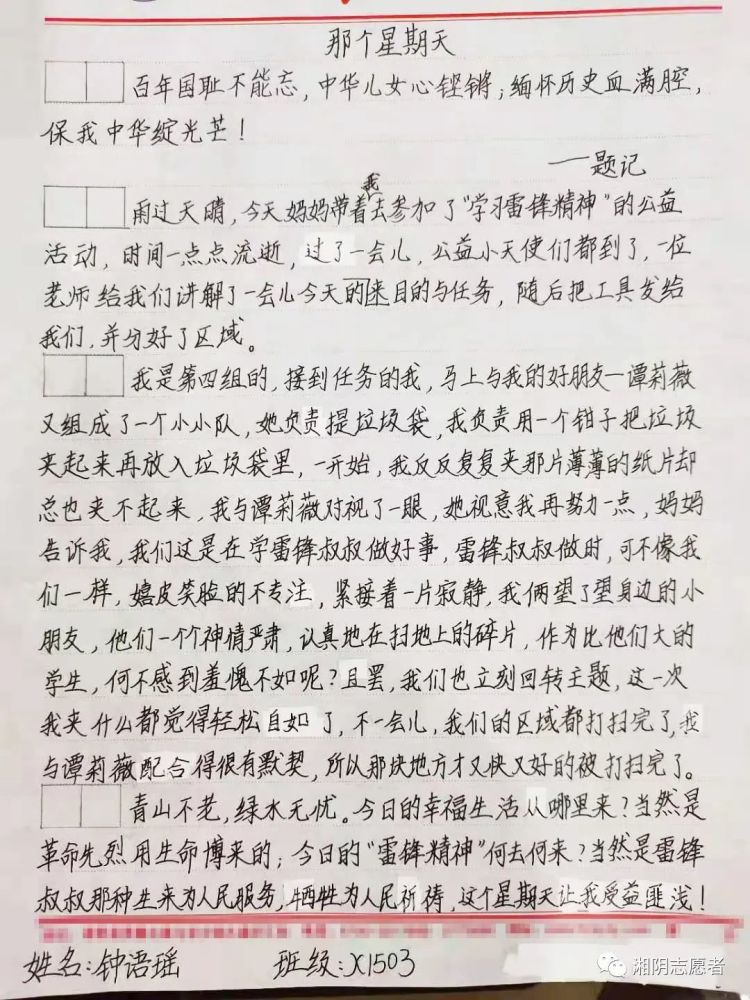 那个星期天
百年国耻不能忘，中华儿女心铿锵；缅怀历史血满腔，
保我中华绽光芒！
——题记
雨过天晴，今天妈妈带着我去参加了“学习雷锋精神”的公益
活动，时间一点点流逝，过了一会儿，公益小天使们都到了，一位
老师给我们讲解了一会儿今天的来目的与任务，随后把工具发给
我们，并分好了区域。
我是第四组的，接到任务的我，马上与我的好朋友—谭莉薇
又组成了一个小小队，她负责提垃圾袋，我负责用一个钳子把垃圾
夹起来再放入垃圾袋里，一开始，我反反复复夹那片薄薄的纸片却
总也夹不起来，我与谭莉薇对视了一眼，她视意我再努力一点，妈妈
告诉我，我们这是在学雷锋叔叔做好事，雷锋叔叔做时，可不像我
们一样，嬉皮笑脸的不专注，紧接着一片寂静，我俩望了望身边的小
朋友，他们一个个神情严肃，认真地在扫地上的碎片，作为比他们大的
学生，何不感到羞愧不如呢？且罢，我们也立刻回转主题，这一次
我夹什么都觉得轻松自如了，不一会儿，我们的区域都打扫完了，我
与谭莉薇配合得很有默契，所以那块地方才又快又好的被打扫完了。
青山不老，绿水无忧。今日的幸福生活从哪里来？当然是
革命先烈用生命博来的；今日的“雷锋精神”何去何来？当然是雷锋
叔叔那种生来为人民服务，牺牲为人民祈祷，这个星期天让我受益匪浅！
姓名：钟语瑶 班级：X1503
湘阴志愿者